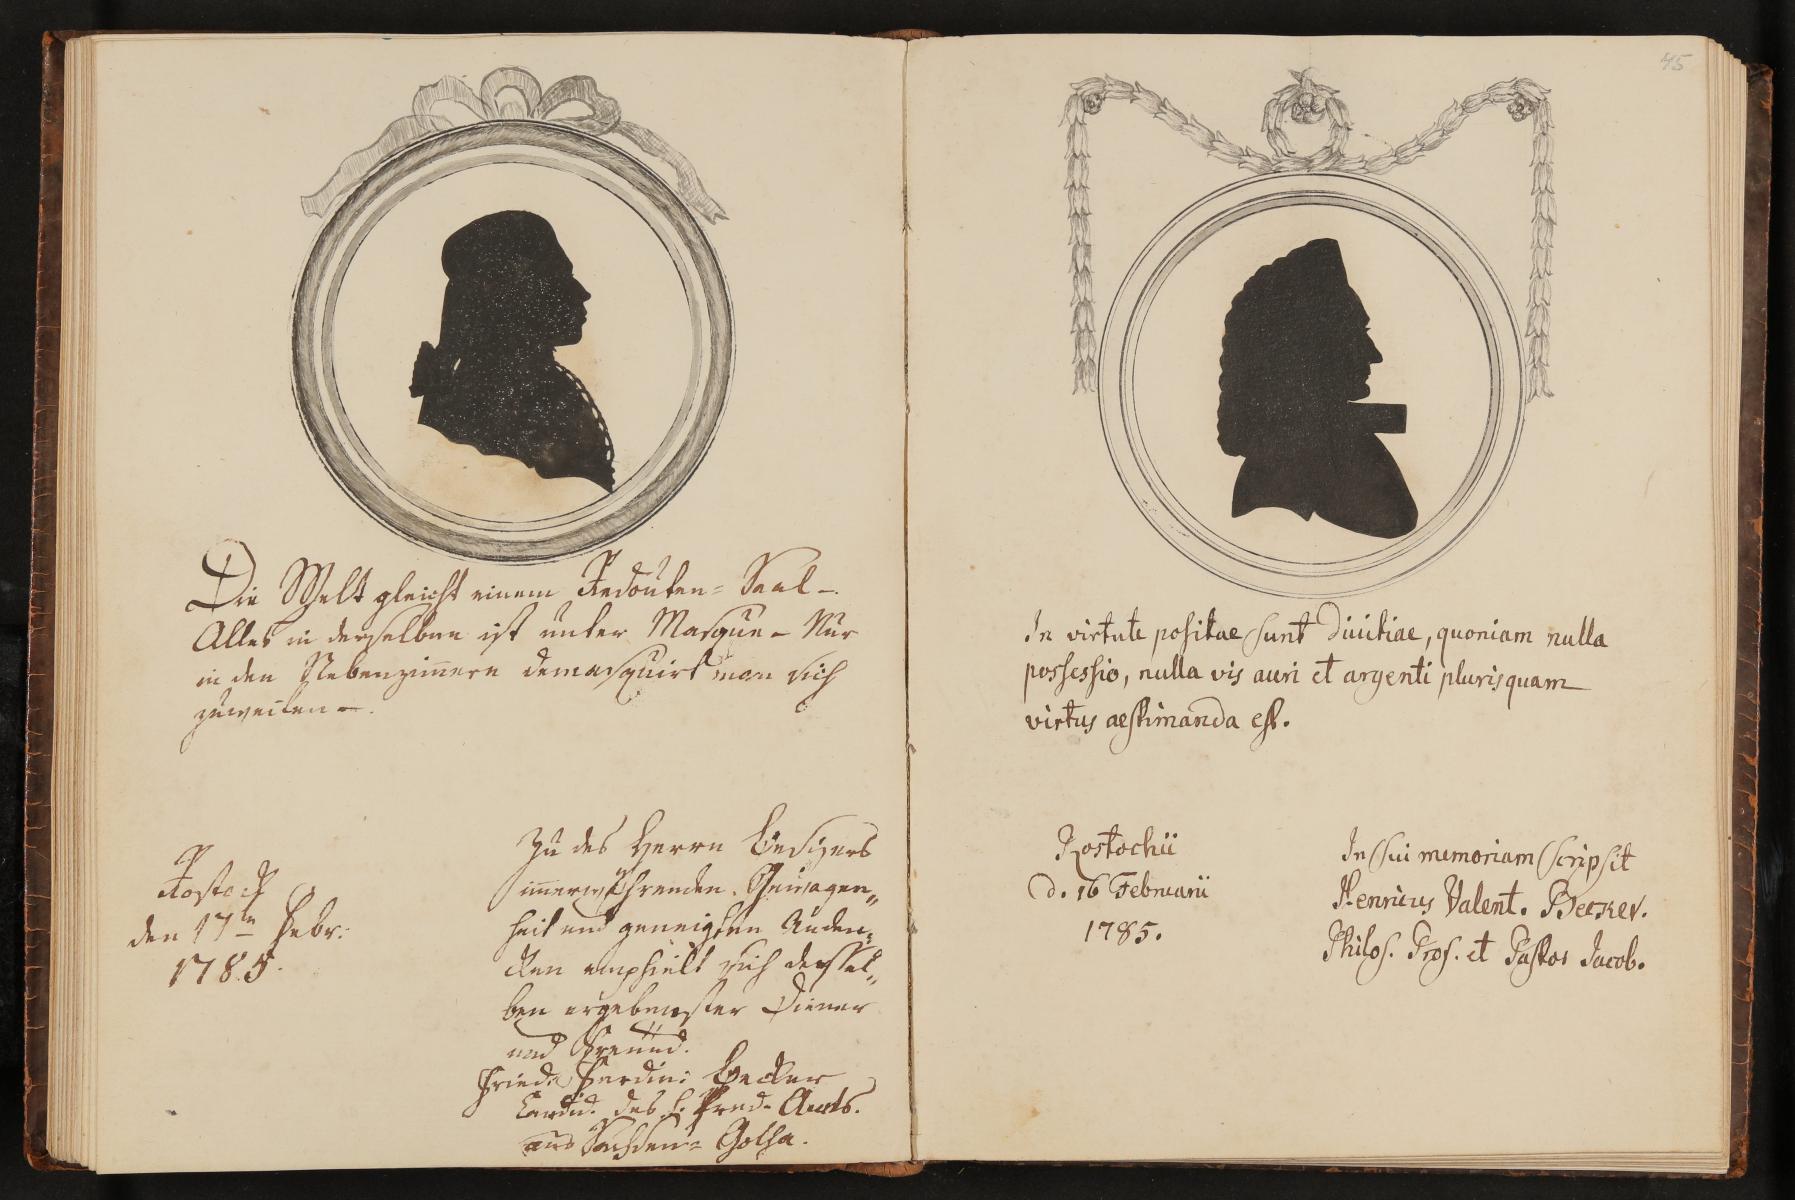 Die Welt gleicht einem Redouten= Saal –.
Alles in derselben ist unter Masque – Nur
in den Nebenzim̅ern demasquirt man sich
zuweilen –.
Rostock
den 17ten Febr:
1785.
Zu des Herrn Besizers
im̅erwährenden Gewogen„
heit und geneigten Anden„
cken emphielt sich dessel„
ben ergebenster Diener
und Freund.
Fried: Ferdin: Becker
Candid. des h. Pred= Amts.
aus Sachsen= Gotha.
45
In virtute positae sunt divitiae, quoniam nulla
possessio, nulla vis auri et argenti pluris quam
virtus aestimanda est.
Rostochii
d. 16 Februarii
1785.
In sui memoriam scripsit
Henricus Valent. Becker.
Philos. Prof. et Pastor Jacob.